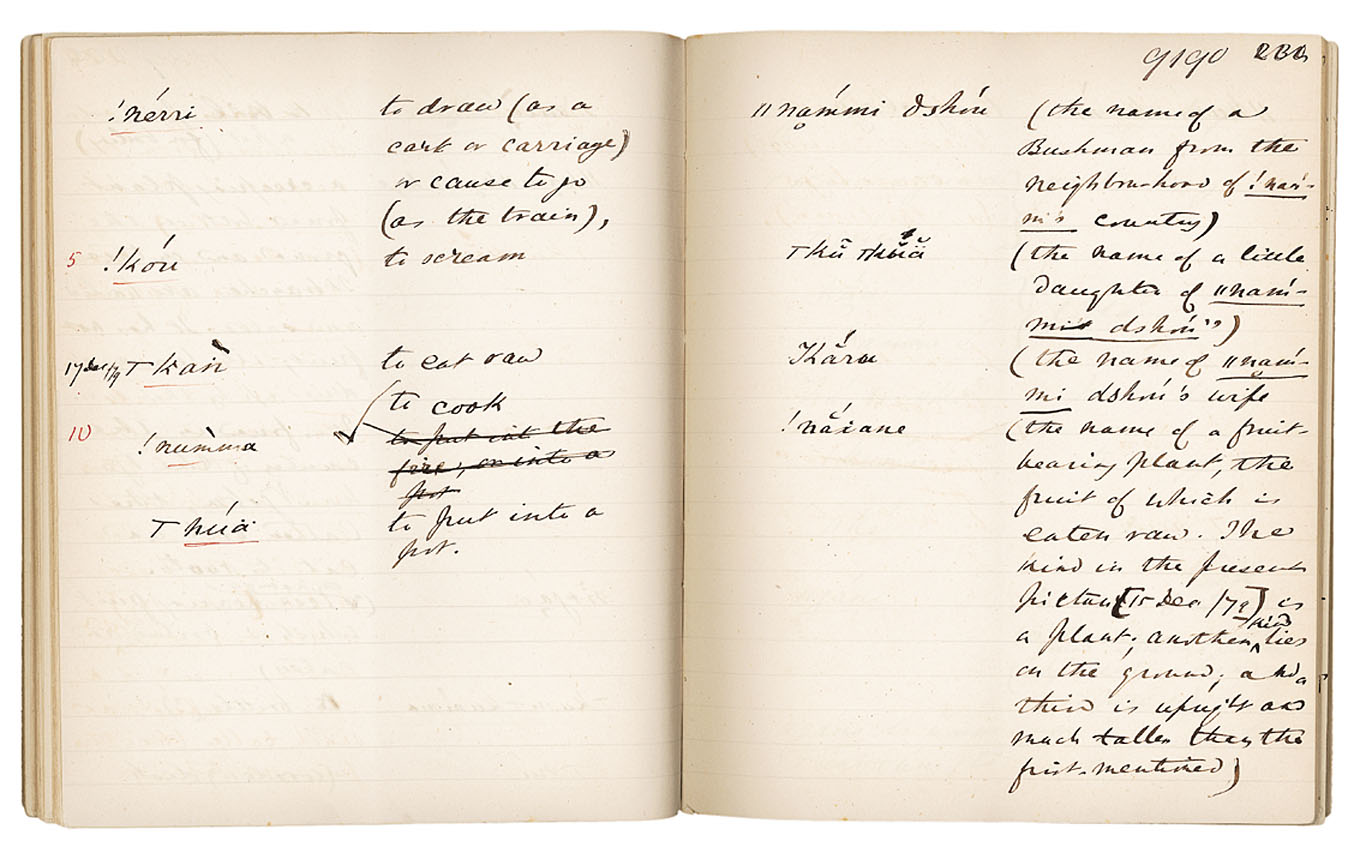 !nérri to draw (as a
cart or carriage)
or cause to go
(as the train),
5 !kóu to scream
17 Dec/79 T kań to eat raw
to cook
10 !nuṁma to put int the
fire; or into a
pot
T núä to put into a
pot.
9190
ǁnámmi dshóu (the name of a
Bushman from the
neighbourhood of !nań-
ni's country)
(the name of a little
daughter of ǁnaḿ-
mi dshóu's)
Kăru (the name of ǁnaḿ-
mi dshóu's wife
!năiane (the name of a fruit-
bearing plant, the
fruit of which is
eaten raw. The
kind in the present
picture [15 Dec /79] is
a plant; another kind lies
on the ground; a
third is upright and
much taller than the
first-mentioned)